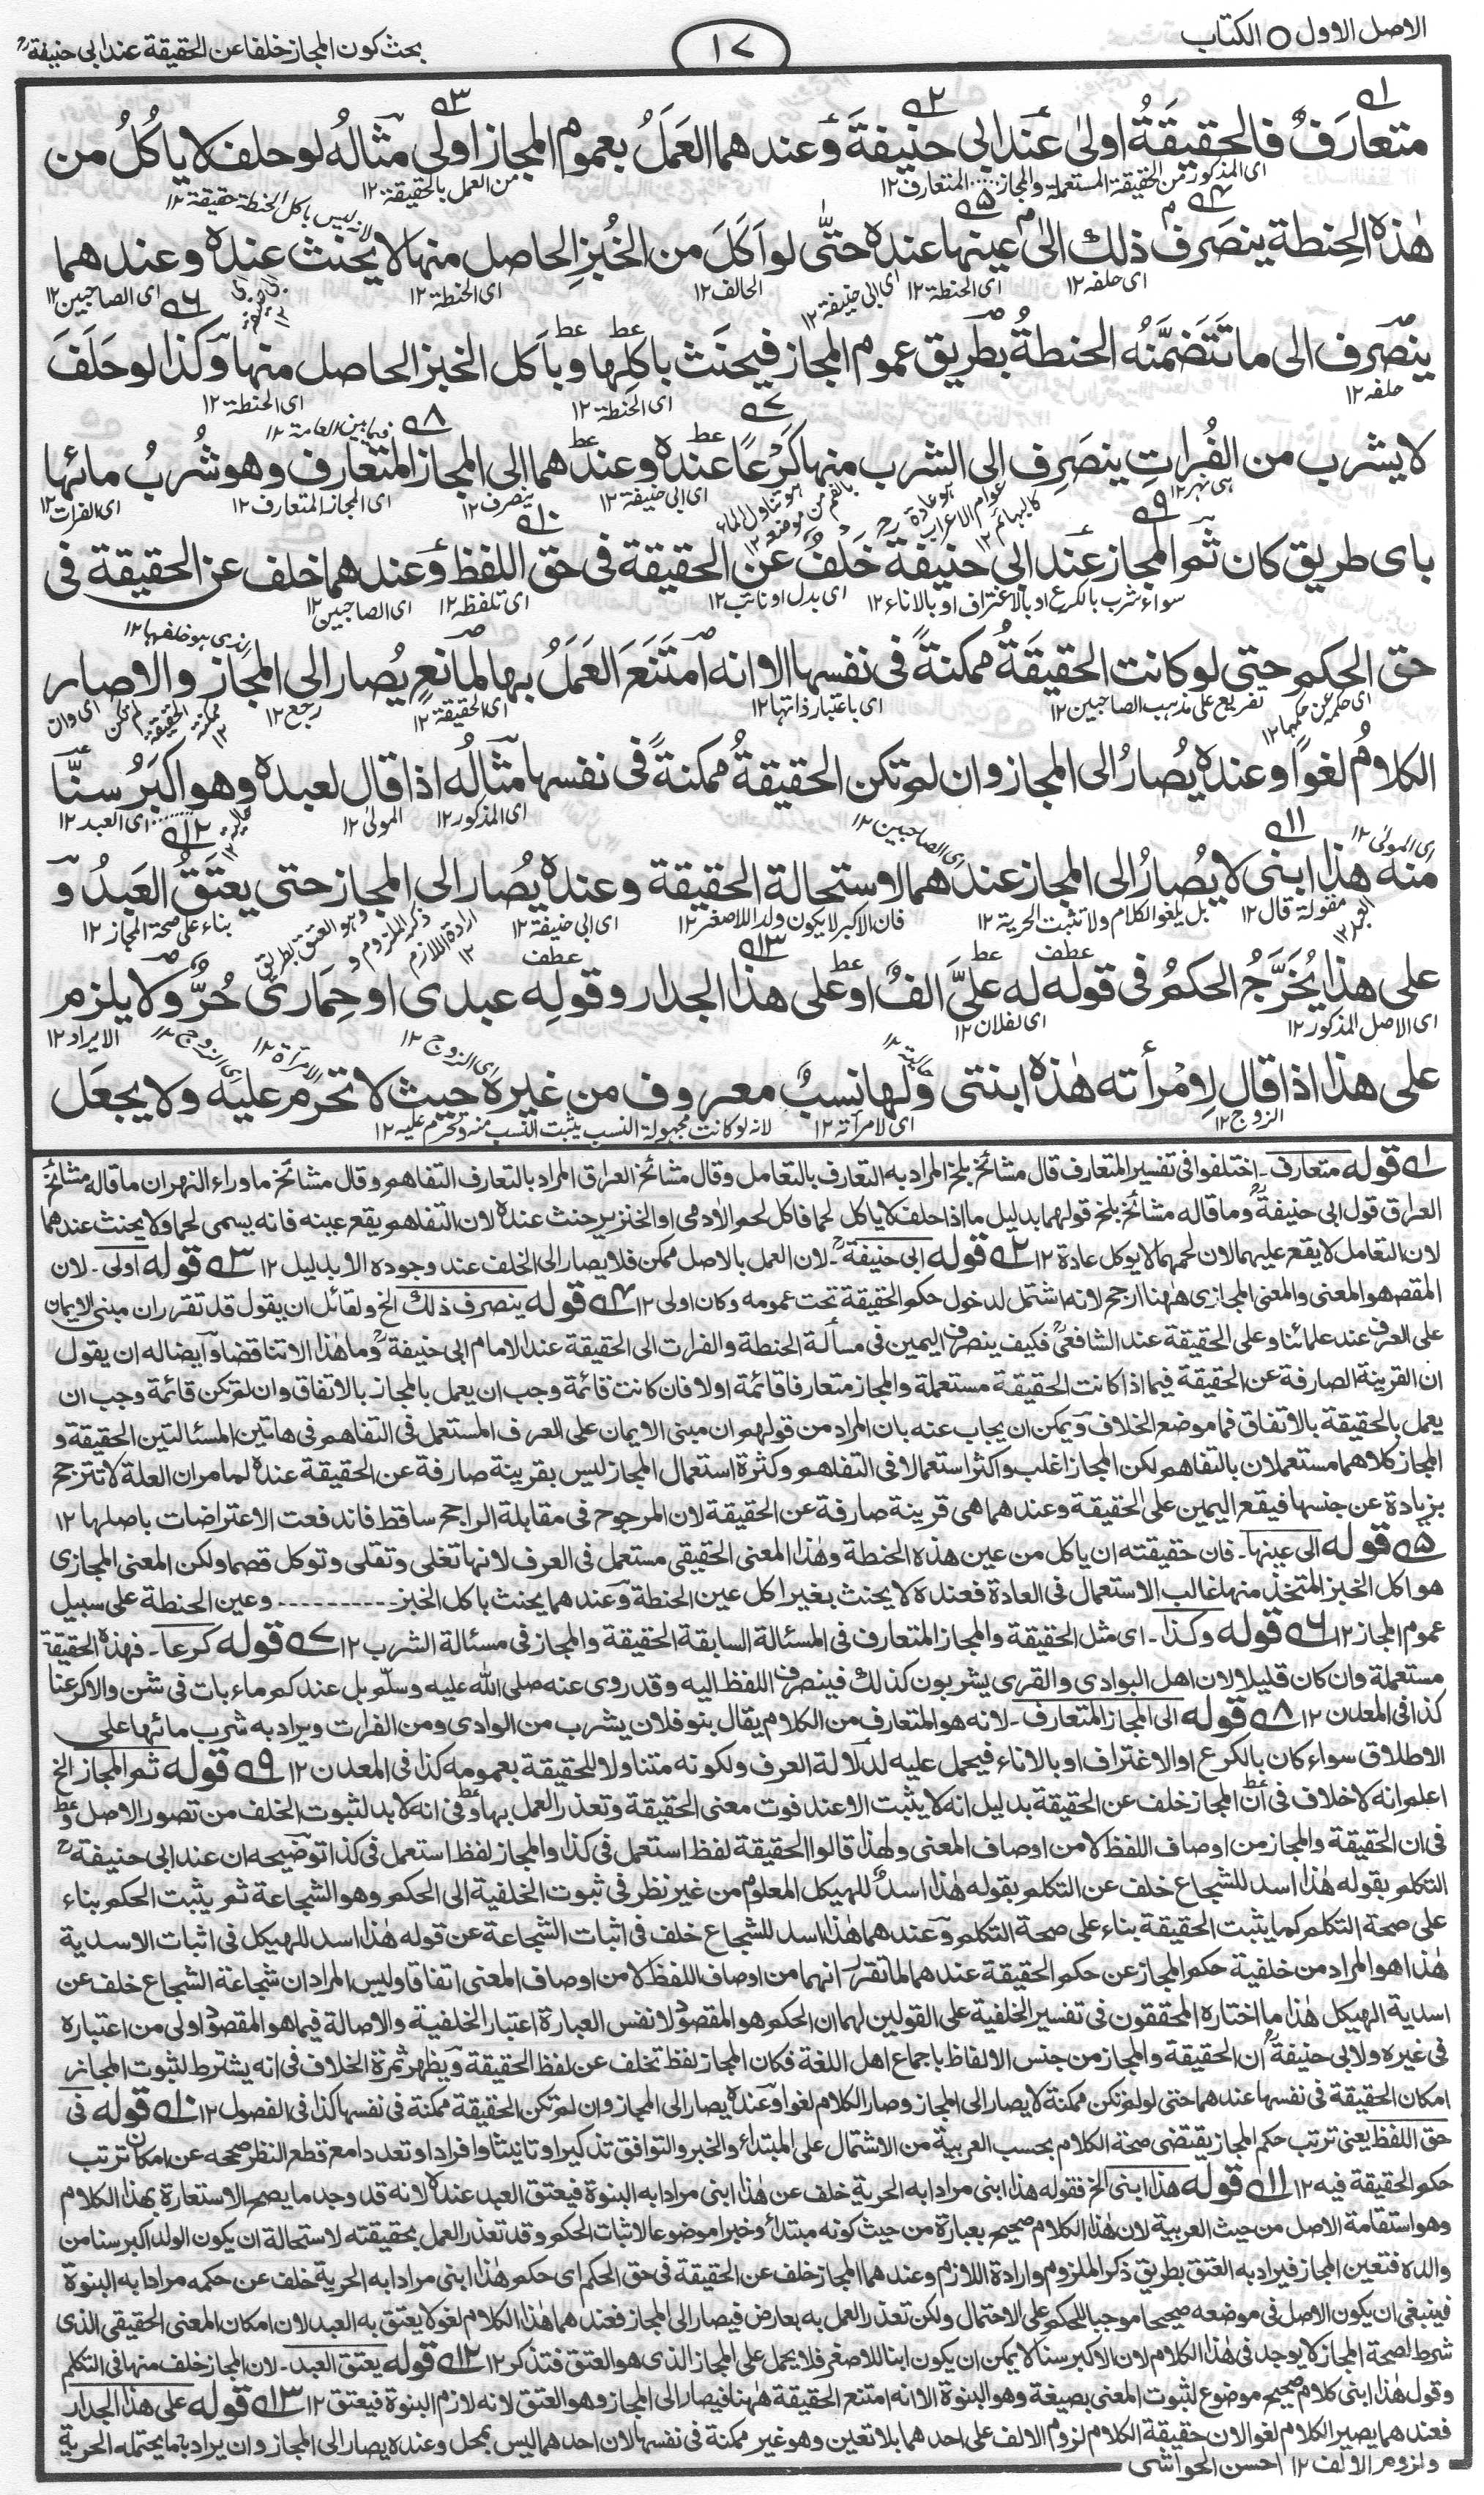 الاصل الاول ○ الكتاب
١٧
بحث كون المجاز خلفا عن الحقيقة عند ابي حنيفةؒ
متعارَفٌ فالحقيقةُ اولىٰ عند ابي حنيفةَ وعندهما العَمَلُ بعموم المجاز اولى مثالُه لو حلف لا ياكُلُ من
هٰذه الحِنطة ينصَرِف ذلك الىٰ عينها عنده حتّٰى لو اَكَلَ من الخُبزِ الحاصل منها لا يحنث عنده وعندهما
ينصَرِف الى ما تَتَضَمَّنُه الحنطةُ بطريق عموم المجاز فيحنَث باكلِها وباَكل الخبز الحاصل منها وكذا لو حَلَفَ
لا يشرب من الفُراتِ ينصَرِف الى الشرب منها كَرْعًا عنده وعندهما الى المجاز المتعارف وهو شُربُ مائها
باى طريق كان ثم المجاز عند ابي حنيفة خَلَفٌ عن الحقيقة فى حق اللفظ وعندهما خلف عن الحقيقة فى
حق الحكم حتى لو كانت الحقيقَةُ ممكنةً فى نفسها الا انه امتَنَعَ العَمَلُ بها لمانعٍ يُصار الى المجاز والا صار
الكلامُ لغوًا وعنده يُصارُ الى المجاز وان لم تكن الحقيقةُ ممكنةً فى نفسها مثالُه اذا قال لعبده وهو اكبَرُ سنًّا
منه هذا ابنى لا يُصارُ الى المجاز عندهما لاستحالة الحقيقة وعنده يُصار الى المجاز حتى يعتَقُ العَبدُ و
على هذا يُخَرَّجُ الحكمُ فى قوله له علىَّ الفٌ او على هذا الجدار وقولِه عبدى او حِمَارى حُرٌّ ولا يلزم
على هذا اذا قال لِامْرأته هٰذه ابنتى ولها نسبٌ معروف من غيره حيث لا تحرم عليه ولا يجعَل
١ قوله متعارف۔ اختلفوا فى تفسير المتعارف قال مشائخ بلخ المراد به التعارف بالتعامل وقال مشائخ العراق المراد بالتعارف التفاهم وقال مشائخ ماوراء النهر ان ما قاله مشائخ
العراق قول ابى حنيفةؒ وما قاله مشائخ بلخ قولهما بدليل ما اذا حلف لا ياكل لحما فاكل لحم الآدمى او الخنزير حنث عنده لان التفاهم يقع عينه فانه يسمى لحما ولا يحنث عندهما
لان التعامل لا يقع عليهما لان لحمهما لا يوكل عادة ١٢ ٢ قوله ابى حنيفةؒ۔ لان العمل بالاصل ممكن فلا يصار الى الخلف عند وجوده الا بدليل ١٢ ٣ قوله اولى۔ لان
المقصد هو المعنى والمعنى المجازى ههنا ارجح لانه اشتمل لدخول حكم الحقيقة تحت عمومه وكان اولى ١٢ ٤ قوله ينصرف ذلك الخ ولقائل ان يقول قد تقرر ان مبنى الايمان
على العرف عند علمائنا وعلى الحقيقة عند الشافعىؒ فكيف ينصرف اليمين فى مسألة الحنطة والفرات الى الحقيقة عند الامام ابى حنيفةؒ وما هذا الا تناقض وايضا له ان يقول
ان القرينة الصارفة عن الحقيقة فيما اذا كانت الحقيقة مستعملة والمجاز متعارفا قائمة اولا فان كانت قائمة وجب ان يعمل بالمجاز بالاتفاق وان لم تكن قائمة وجب ان
يعمل بالحقيقة بالاتفاق فما موضع الخلاف ويمكن ان يجاب عنه بان المراد من قولهم ان مبنى الايمان على العرف المستعمل فى التفاهم فى هاتين المسئالتين الحقيقة و
المجاز كلاهما مستعملان بالتفاهم لكن المجاز اغلب واكثر استعمالا فى التفاهم وكثرة استعمال المجاز ليس بقرينة صارفة عن الحقيقة عنده لما مر ان العلة لا تترجح
بزيادة عن جنسها فيقع اليمين على الحقيقة وعندهما هى قرينة صارفة عن الحقيقة لان المرجوح فى مقابلة الراجح ساقط فاندفعت الاعتراضات باصلها ١٢
٥ قوله الى عينها۔ فان حقيقته ان ياكل من عين هذه الحنطة وهٰذا المعنى الحقيقى مستعمل فى العرف لانها تغلى وتقلى وتوكل قصما ولكن المعنى المجازى
هو اكل الخبز المتخذ منها غالب الاستعمال فى العادة فعنده لا يحنث بغير اكل عين الحنطة وعندهما يحنث باكل الخبز ---------- وعين الحنطة على سبيل
عموم المجاز ١٢ ٦ قوله وكذا۔ اى مثل الحقيقة والمجاز المتعارف فى المسئالة السابقة الحقيقة والمجاز فى مسئالة الشرب ١٢ ٧ قوله كرعا۔ فهذه الحقيقة
مستعملة وان كان قليلا ولان اهل البوادى والقرى يشربون كذلك فينصرف اللفظ اليه وقد روى عنه صلى الله عليه وسلم بل عندكم ماء بات فى شن والا كرعنا
كذا فى المعدن ١٢ ٨ قوله الى المجاز المتعارف۔ لانه هو المتعارف من الكلام يقال بنو فلان يشرب من الوادى ومن الفرات ويراد به شرب مائها على
الاطلاق سواء كان بالكرع او الاغتراف او بالاناء فيحمل عليه لدلالة العرف ولكونه متناولا للحقيقة بعمومه كذا فى المعدن ١٢ ٩ قوله ثم المجاز الخ
اعلم انه لا خلاف فى ان المجاز خلف عن الحقيقة بدليل انه لا يثبت الا عند فوت معنى الحقيقة وتعذر العمل بها وفى انه لا بد لثبوت الخلف من تصور الاصل و
فى ان الحقيقة والمجاز من اوصاف اللفظ لا من اوصاف المعنى ولهذا قالوا الحقيقة لفظ استعمل فى كذا والمجاز لفظ استعمل فى كذا توضيحه ان عند ابى حنيفةؒ
التكلم بقوله هٰذا اسد للشجاع خلف عن التكلم بقوله هٰذا اسدٌ للهيكل المعلوم من غير نظر فى ثبوت الخلفية الى الحكم وهو الشجاعة ثم يثبت الحكم بناء
على صحة التكلم كما يثبت الحقيقة بناء على صحة التكلم وعندهما هٰذا اسد للشجاع خلف فى اثبات الشجاعة عن قوله هٰذا اسد للهيكل فى اثبات الاسدية
هٰذا هو المراد من خلفية حكم المجاز عن حكم الحقيقة عندهما لما تقرر انهما من اوصاف اللفظ لا من اوصاف المعنى اتفاقا وليس المراد ان شجاعة الشجاع خلف عن
اسدية الهيكل هٰذا ما اختاره المحققون فى تفسير الخلفية على القولين لهما ان الحكم هو المقصود لا نفس العبارة اعتبار الخلفية والاصالة فيما هو المقصود اولى من اعتباره
فى غيره ولابى حنيفةؒ ان الحقيقة والمجاز من جنس الالفاظ باجماع اهل اللغة فكان المجاز لفظ تخلف عن لفظ الحقيقة ويظهر ثمرة الخلاف فى انه يشترط لثبوت المجاز
امكان الحقيقة فى نفسها عندهما حتى لو لم تكن ممكنة لا يصار الى المجاز وصار الكلام لغوا وعنده يصار الى المجاز وان لم تكن الحقيقة ممكنة فى نفسها كذا فى الفصول ١٢ ١٠ قوله فى
حق اللفظ يعنى ترتب حكم المجاز يقتضى صحة الكلام بحسب العربية من الاشتمال على المبتدأ والخبر والتوافق تذكيرا وتانيثا وافرادا وتعددا مع قطع النظر صحه عن امكان ترتب
حكم الحقيقة فيه ١٢ ١١ قوله هذا ابنى الخ فقوله هذا ابنى مرادا به الحرية خلف عن هٰذا ابنى مرادا به البنوة فيعتق العبد عنده لانه قد وجد ما يصح الاستعارة بهذا الكلام
وهو استقامة الاصل من حيث العربية لان هٰذا الكلام صحيح بعبارة من حيث كونه مبتدأ وخبرا موضوعا لاثبات الحكم وقد تعذر العمل بحقيقته لاستحالة ان يكون الولد اكبر سنا من
والده فتعين المجاز فيراد به العتق بطريق ذكر الملزوم وارادة اللازم وعندهما المجاز خلف عن الحقيقة فى حق الحكم اى حكم هٰذا ابنى مرادا به الحرية خلف عن حكمه مرادا به البنوة
فينبغى ان يكون الاصل فى موضعه صحيحا موجبا للحكم على الاحتمال ولكن تعذر العمل به بعارض فيصار الى المجاز فعندهما هٰذا الكلام لغو لا يعتق به العبد لان امكان المعنى الحقيقى الذى
شرط لصحة المجاز لا يوجد فى هٰذا الكلام لان الاكبر سنا لا يمكن ان يكون ابنا للاصغر فلا يحمل على المجاز الذى هو العتق فتذكر ١٢ ١٢ قوله يعتق العبد۔ لان المجاز خلف منها فى التكلم
وقول هٰذا ابنى كلام صحيح موضوع لثبوت المعنى بصيغة وهو البنوة الا انه امتنع الحقيقة ههنا فيصار الى المجاز وهو العتق لانه لازم البنوة فيعتق ١٢ ١٣ قوله على هذا الجدار
فعندهما يصير الكلام لغو الان حقيقة الكلام لزوم الالف على احدهما بلا تعين وهو غير ممكنة فى نفسها لان احدهما ليس بمحل وعنده يصار الى المجاز وان يراد بما يحتمله الحرية
ولزوم الالف ١٢ احسن الحواشى